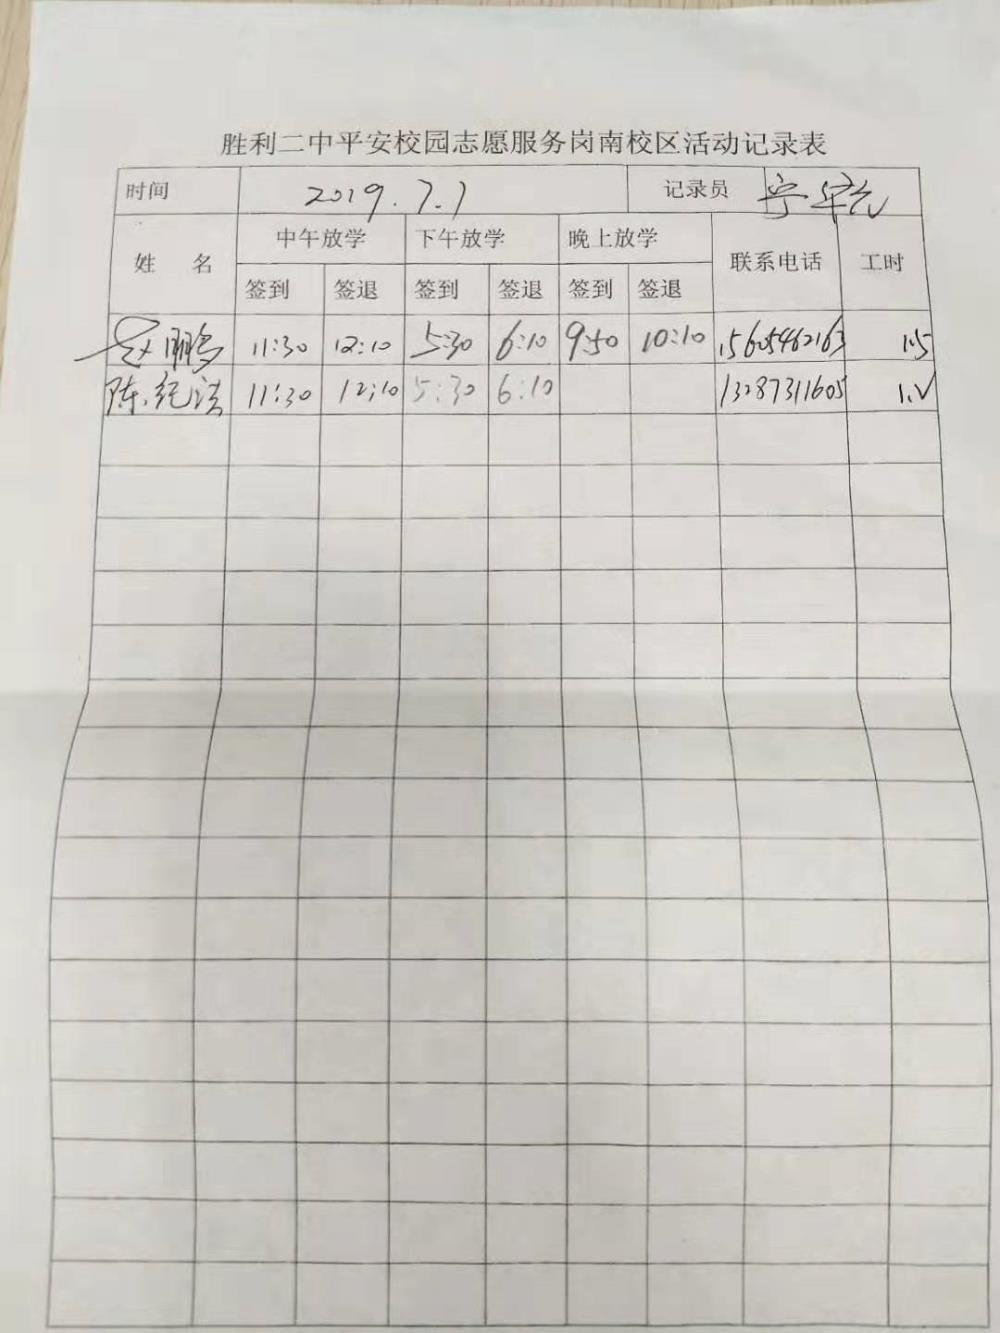 胜利二中平安校园志愿服务岗南校区活动记录表
时间 2019.7.1 记录员 宁
姓 名 中午放学 下午放学 晚上放学 联系电话 工时
签到 签退 签到 签退 签到 签退
赵鹏 11:30 12:10 5:30 6:10 9:50 10:10 15605462163 1.5
陈纪法 11:30 12:10 5:30 6:10 13287311605